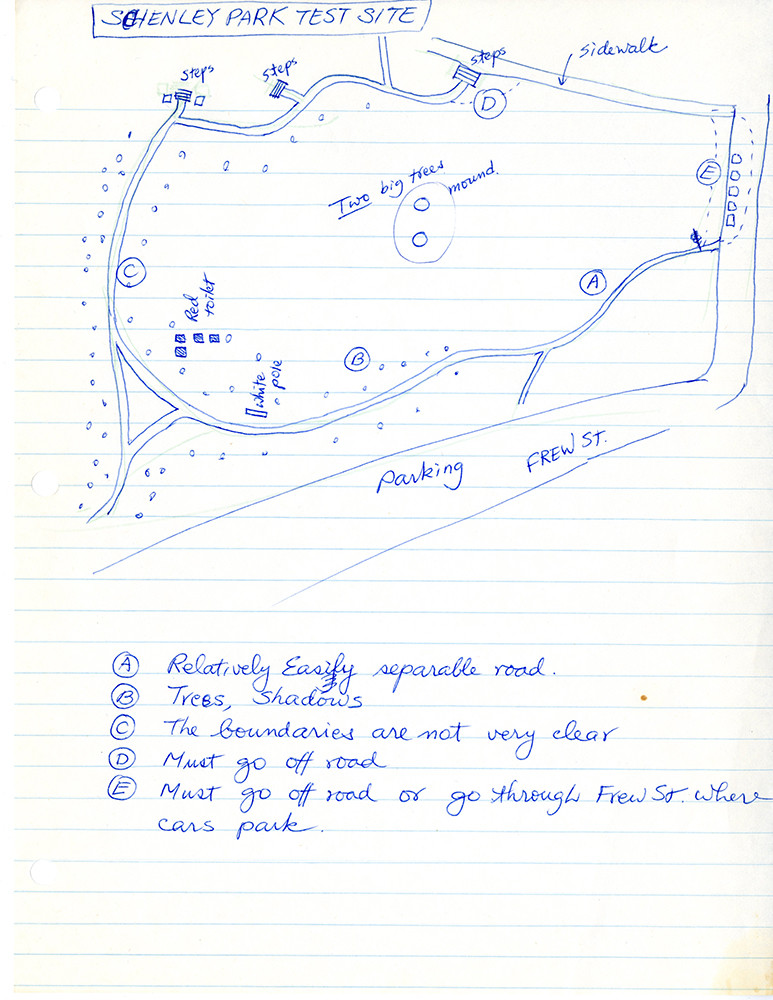 SCHENLEY PARK TEST SITE
steps
steps
steps
sidewalk
D
E
Two big trees
mound.
C
A
Red
toilet
B
white
pole
Parking
FREW ST.
A Relatively Easily separable road.
B Trees, Shadows
C The boundaries are not very clear
D Must go off road
E Must go off road or go through Frew St. where
cars park.